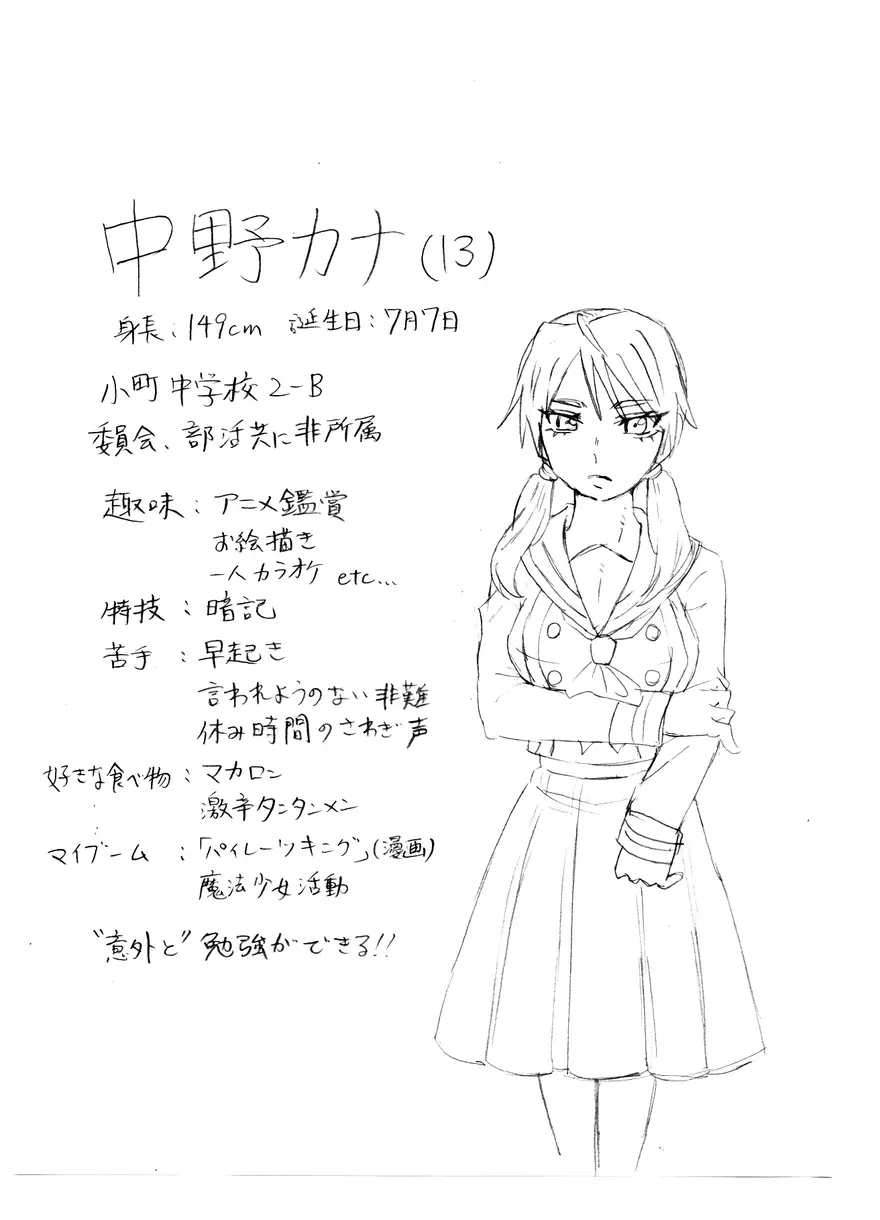 中野カナ(13)
身長:149cm 誕生日:7月7日
小町中学校2-B
委員会、部活共に非所属
趣味:アニメ鑑賞
お絵描き
一人カラオケ etc...
特技:暗記
苦手:早起き
言われようのない非難
休み時間のさわぎ声
好きな食べ物:マカロン
激辛タンタンメン
マイブーム:「パイレーツキング」(漫画)
魔法少女活動
"意外と"勉強ができる!!